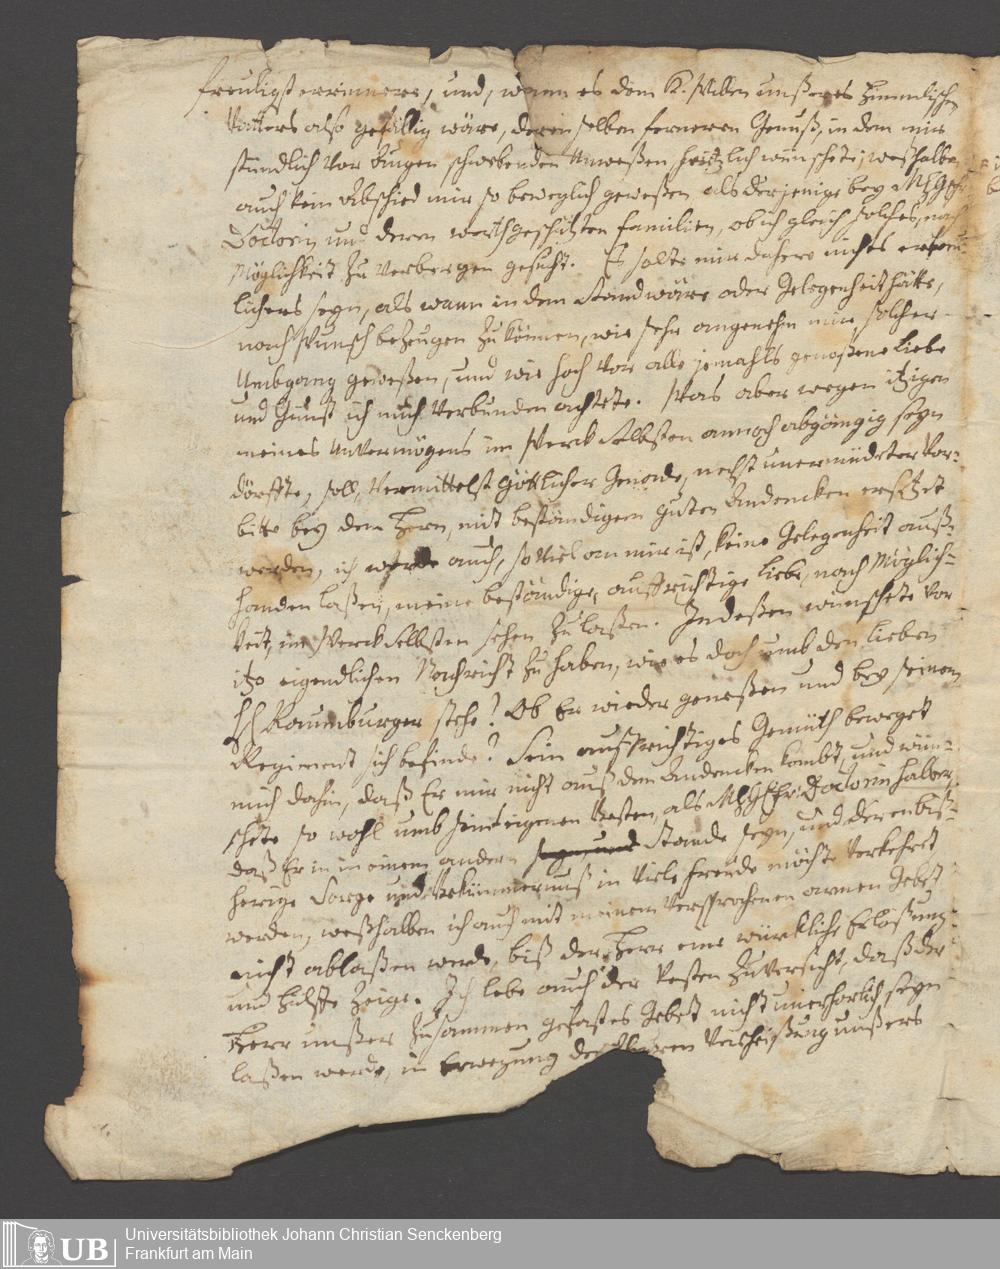 freudigst errinnere, und, wann es dem H. Willen unßeres Himmlischen
Vatters also gefällig wäre, deren selben ferneren Genuß, in dem mir
stündlich vor Augen schwebenden Anweßen, hertzlich wünschete; weßhalben
auch kein Abschied mir so beweglich geweßen als derjenige bey
Doctorin und deren werthgeschätzten Familien, ob ich gleich solches, nach
Möglichkeit zu verbergen gesucht. Es solte mir dahero nichts erfreu-
lichers seyn, als wann in dem Stand wäre oder Gelegenheit hätte,
nach Wunsch bezeugen zu können, wie sehr angenehm mir solcher
Umbgang geweßen, und wie hoch vor alle jemahls genoßene Liebe
und Gunst ich mich verbunden achtete. Was aber wegen itzigen
meines Unvermögens im Werck Selbsten annoch abgängig seyn
dörffte, soll, vermittelst Göttlicher Gnade, nebst unermüdeter Vor-
bitte bey dem Herrn, mit beständigem guten Andencken ersetzt
werden, ich werde auch, so viel an mir ist, keine Gelegenheit auß-
handen laßen, meine beständige, auffrichtige Liebe, nach Möglich-
keit, im Werck Selbsten sehen zu laßen. Indeßen wünschete vor
itzo eigendlichen Nachricht zu haben, wie es doch umb den lieben
Naumburger stehe? Ob Er wieder geneßen und bey seinem
Regiment sich befinde? Sein auffrichtiges Gemüth beweget
mich dahin, daß Er mir nicht auß dem Andencken kombt, und wün-
schete so wohl umb Seines eigenen Besten, als Doctorin halber,
daß Er in in einem andern Stande seyn, und deren biß-
herige Sorge und Bekümmernuß in viele Freude möchte verkehret
werden, weßhalben ich auch mit meinem versprochenen armen Gebet
nicht ablaßen werde, biß der Herr eine würckliche Erlößung
und Hülffe zeige. Ich lebe auch der vesten Zuversicht, daß der
Herr unßer zusammen gefastes Gebet nicht unerhörlich seyn
laßen werde, in Erwegung der Verheißung unßers
Universitätsbibliothek Johann Christian Senckenberg
Frankfurt am Main
UB